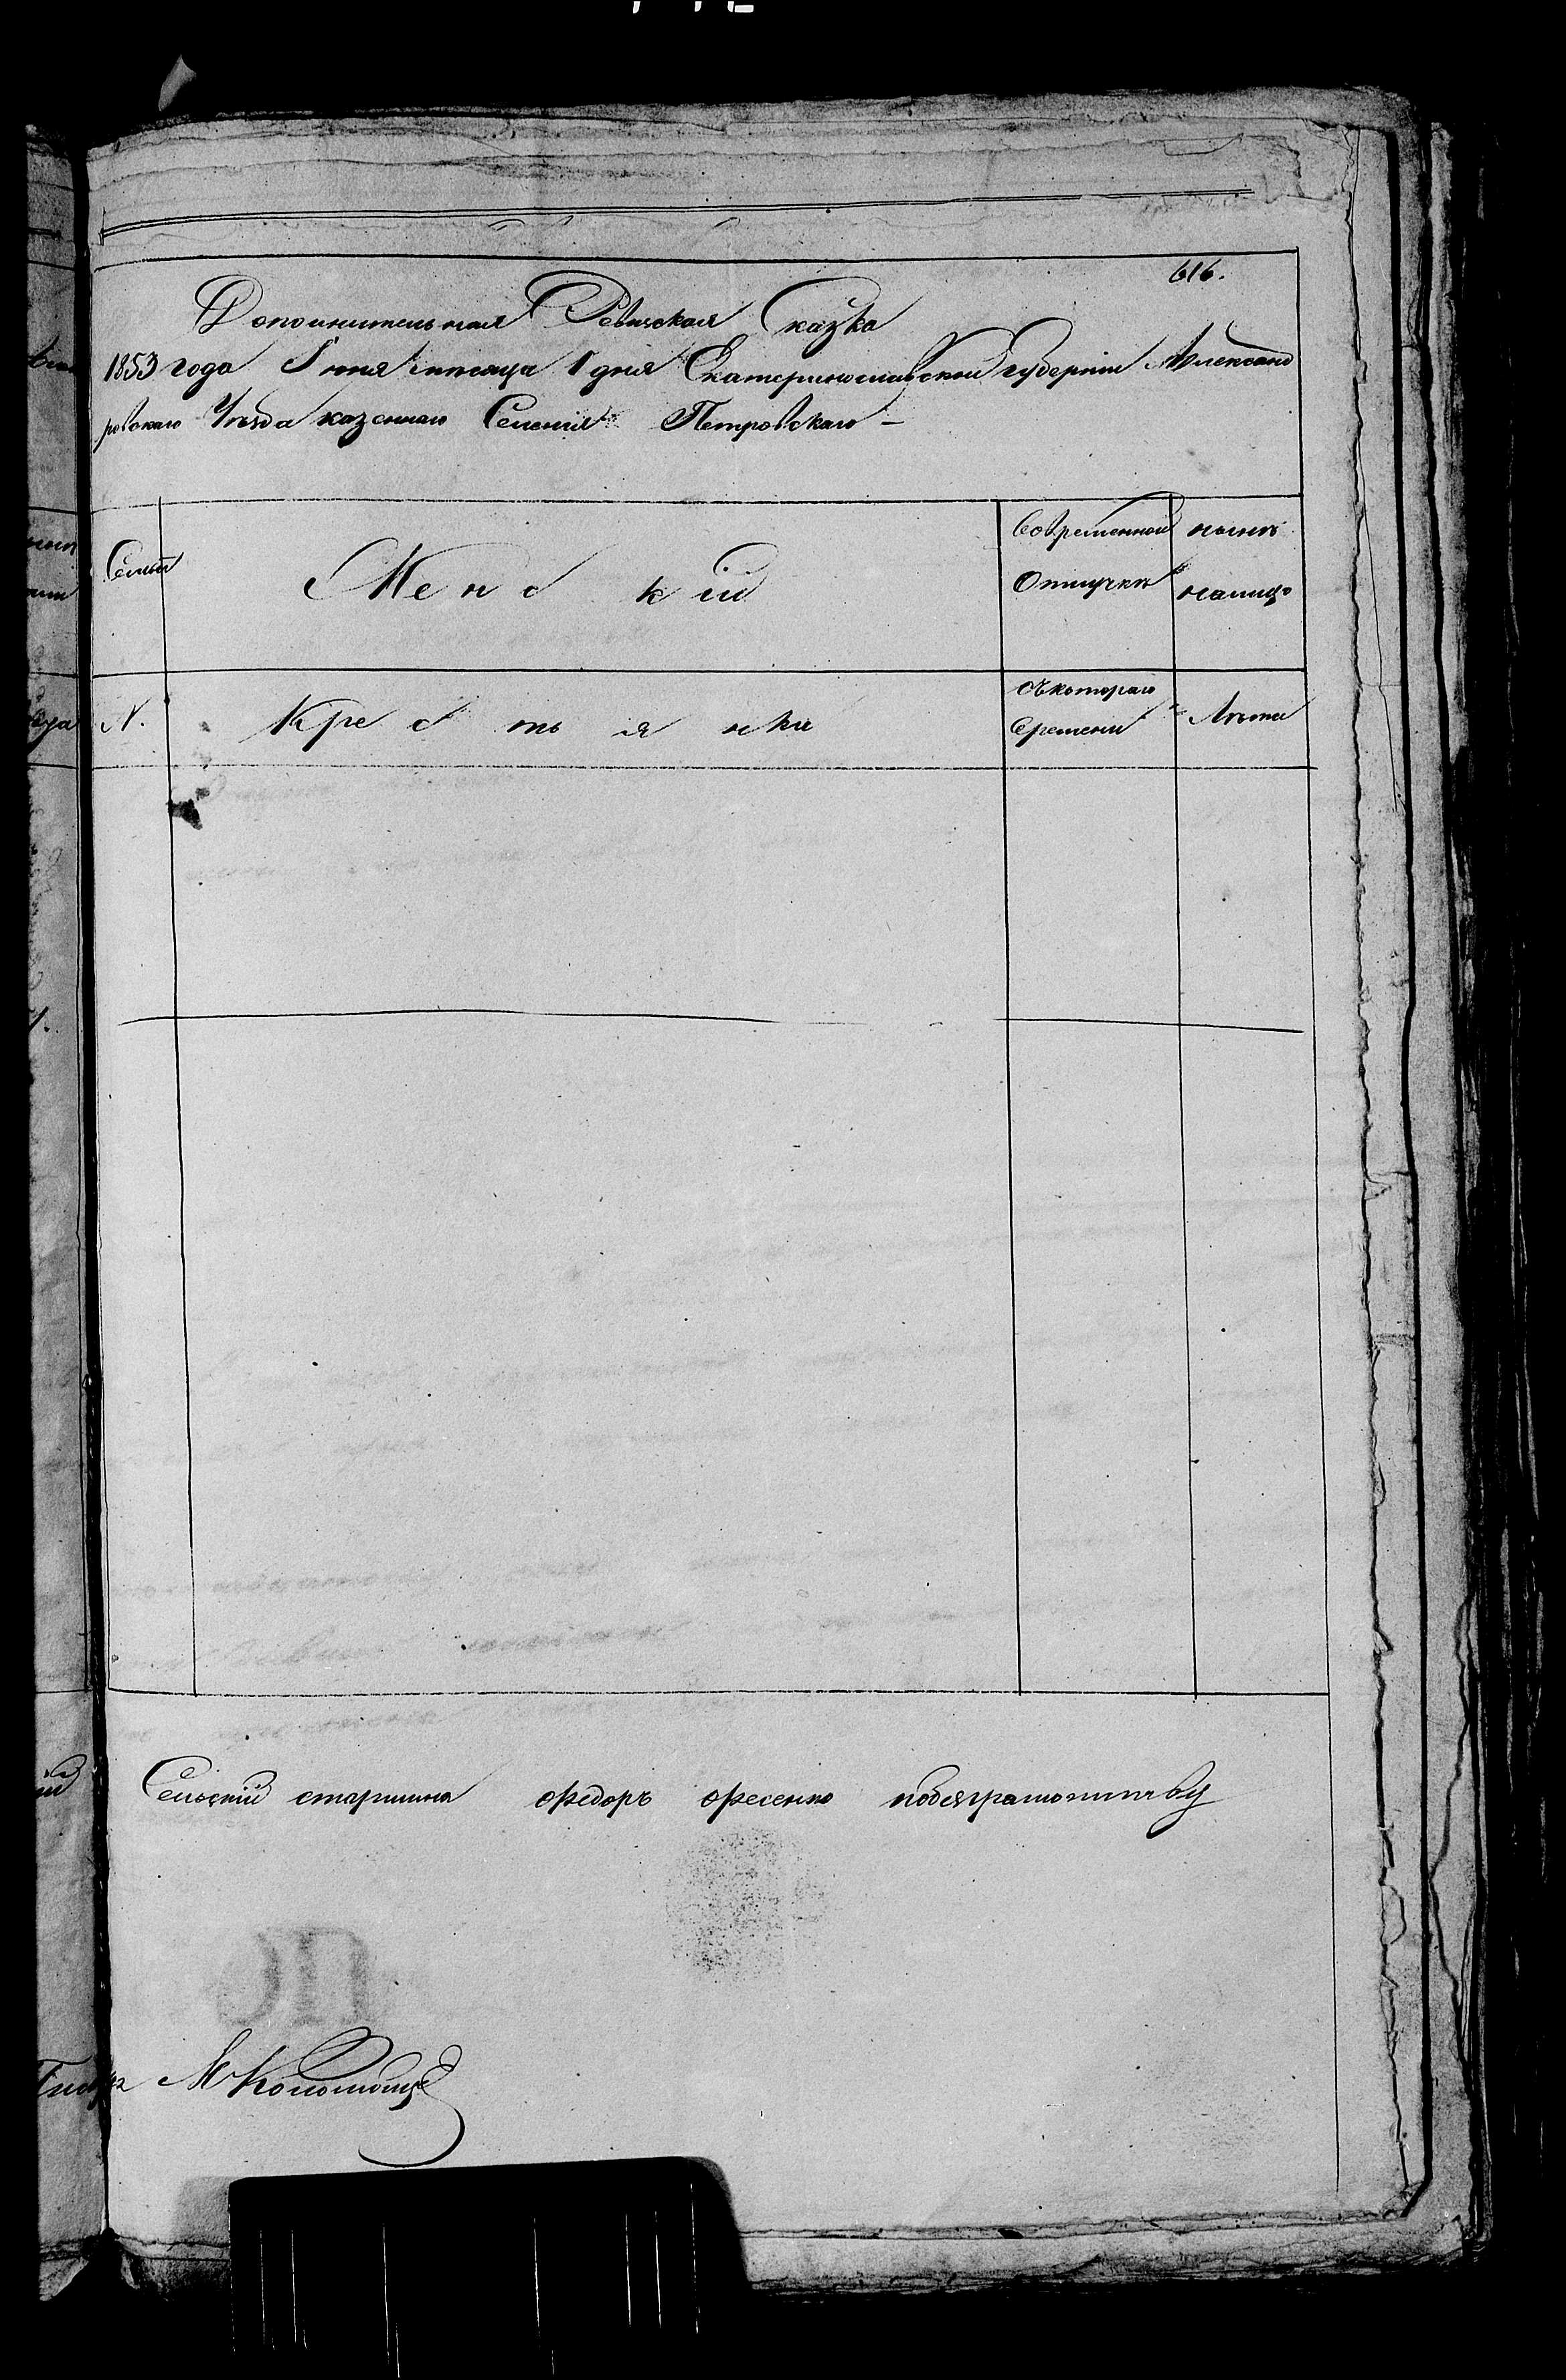 616.
Дополнительная Ревизская Сказка
1853 года Іюня месяца 1 дня Екатеринославской губерніи Александ
ровскаго Уѣзда казеннаго Селенія Петровскаго –
Семьи
Женскій
Вовременной
Отлучкѣ
нынѣ
налицо
N.
Крестьянки
Съкотораго
Времени
Лѣта
Сельскій старшина Федоръ Фесенко
М Коломоецъ